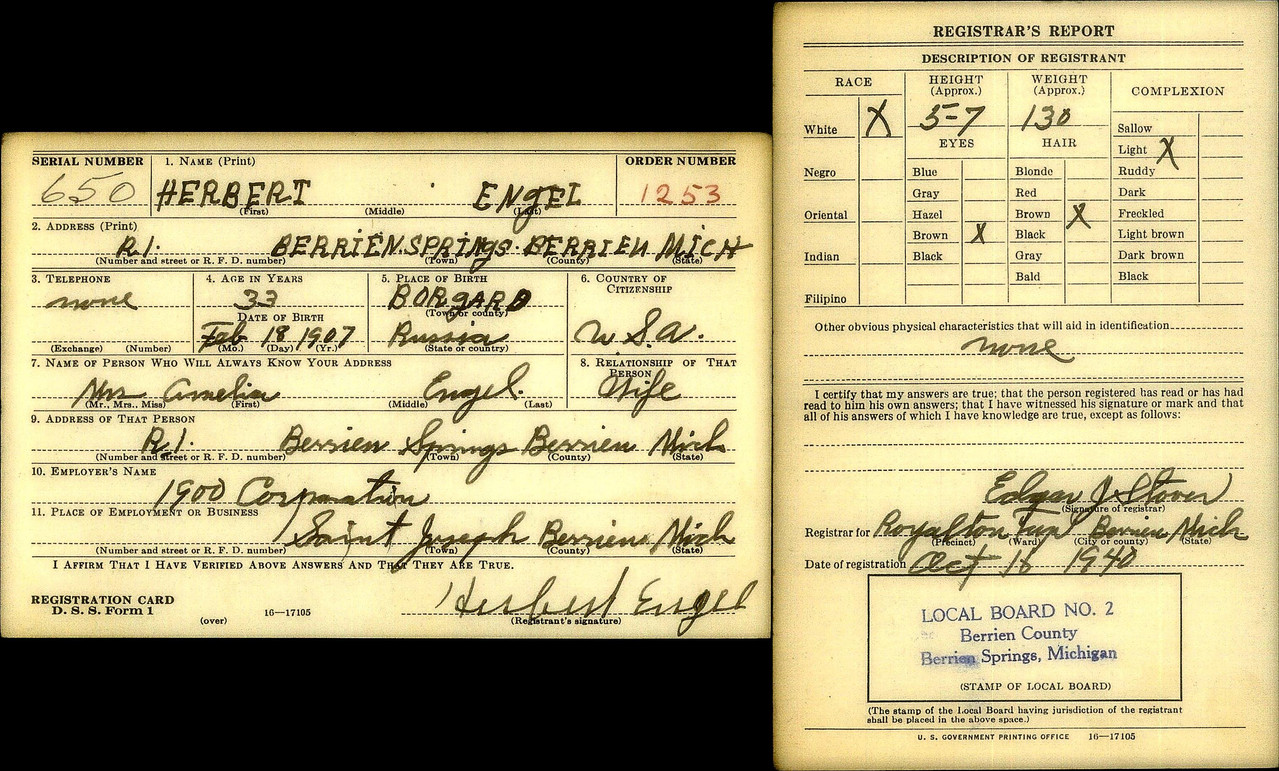 SERIAL NUMBER 1. NAME (Print) ORDER NUMBER
650 HERBERT ENgEL 1253
(First) (Middle) (Last)
2. ADDRESS (Print)
R1. BERRIEN. SPRINgS. BERRIEN. MICH
(Number and street or R. F. D. number) (Town) (County) (State)
3. TELEPHONE 4. AGE IN YEARS 5. PLACE OF BIRTH 6. COUNTRY OF CITIZENSHIP
none 33 BORgARD
DATE OF BIRTH (Town or county)
Feb 18 1907 Russia U.S.A.
(Exchange) (Number) (Mo.) (Day) (Yr.) (State or country)
7. NAME OF PERSON WHO WILL ALWAYS KNOW YOUR ADDRESS 8. RELATIONSHIP OF THAT PERSON
Mrs Amelia Engel. Wife
(Mr., Mrs., Miss) (First) (Middle) (Last)
9. ADDRESS OF THAT PERSON
R1. Berrien Springs Berrien Mich
(Number and street or R. F. D. number) (Town) (County) (State)
10. EMPLOYER'S NAME
1900 Corporation
11. PLACE OF EMPLOYMENT OR BUSINESS
Saint Joseph Berrien Mich
(Number and street or R. F. D. number) (Town) (County) (State)
I AFFIRM THAT I HAVE VERIFIED ABOVE ANSWERS AND THAT THEY ARE TRUE.
REGISTRATION CARD
D. S. S. Form 1 16—17105 Herbert Engel
(over) (Registrant's signature)
REGISTRAR'S REPORT
DESCRIPTION OF REGISTRANT
RACE HEIGHT (Approx.) WEIGHT (Approx.) COMPLEXION
White X 5-7 130 Sallow
EYES HAIR Light X
Negro Blue Blonde Ruddy
Gray Red Dark
Oriental Hazel Brown X Freckled
Brown X Black Light brown
Indian Black Gray Dark brown
Bald Black
Filipino
Other obvious physical characteristics that will aid in identification
none
I certify that my answers are true; that the person registered has read or has had
read to him his own answers; that I have witnessed his signature or mark and that
all of his answers of which I have knowledge are true, except as follows:
Edgar J Stover
(Signature of registrar)
Registrar for Royalton Twp Berrien Mich
(Precinct) (Ward) (City or county) (State)
Date of registration Oct 16 1940
LOCAL BOARD NO. 2
Berrien County
Berrien Springs, Michigan
(STAMP OF LOCAL BOARD)
(The stamp of the Local Board having jurisdiction of the registrant
shall be placed in the above space.)
U. S. GOVERNMENT PRINTING OFFICE 16—17105